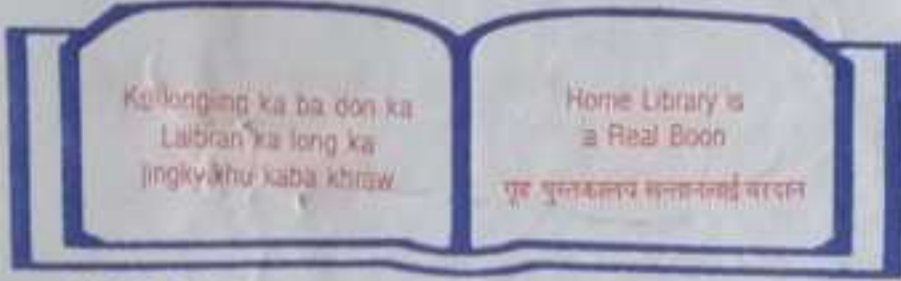 Ka longiing ka ba don ka
Laibran ka long ka
jingkyrkhu kaba khraw
Home Library is
a Real Boon
गृह पुस्तकालय सन्तानलाई वरदान